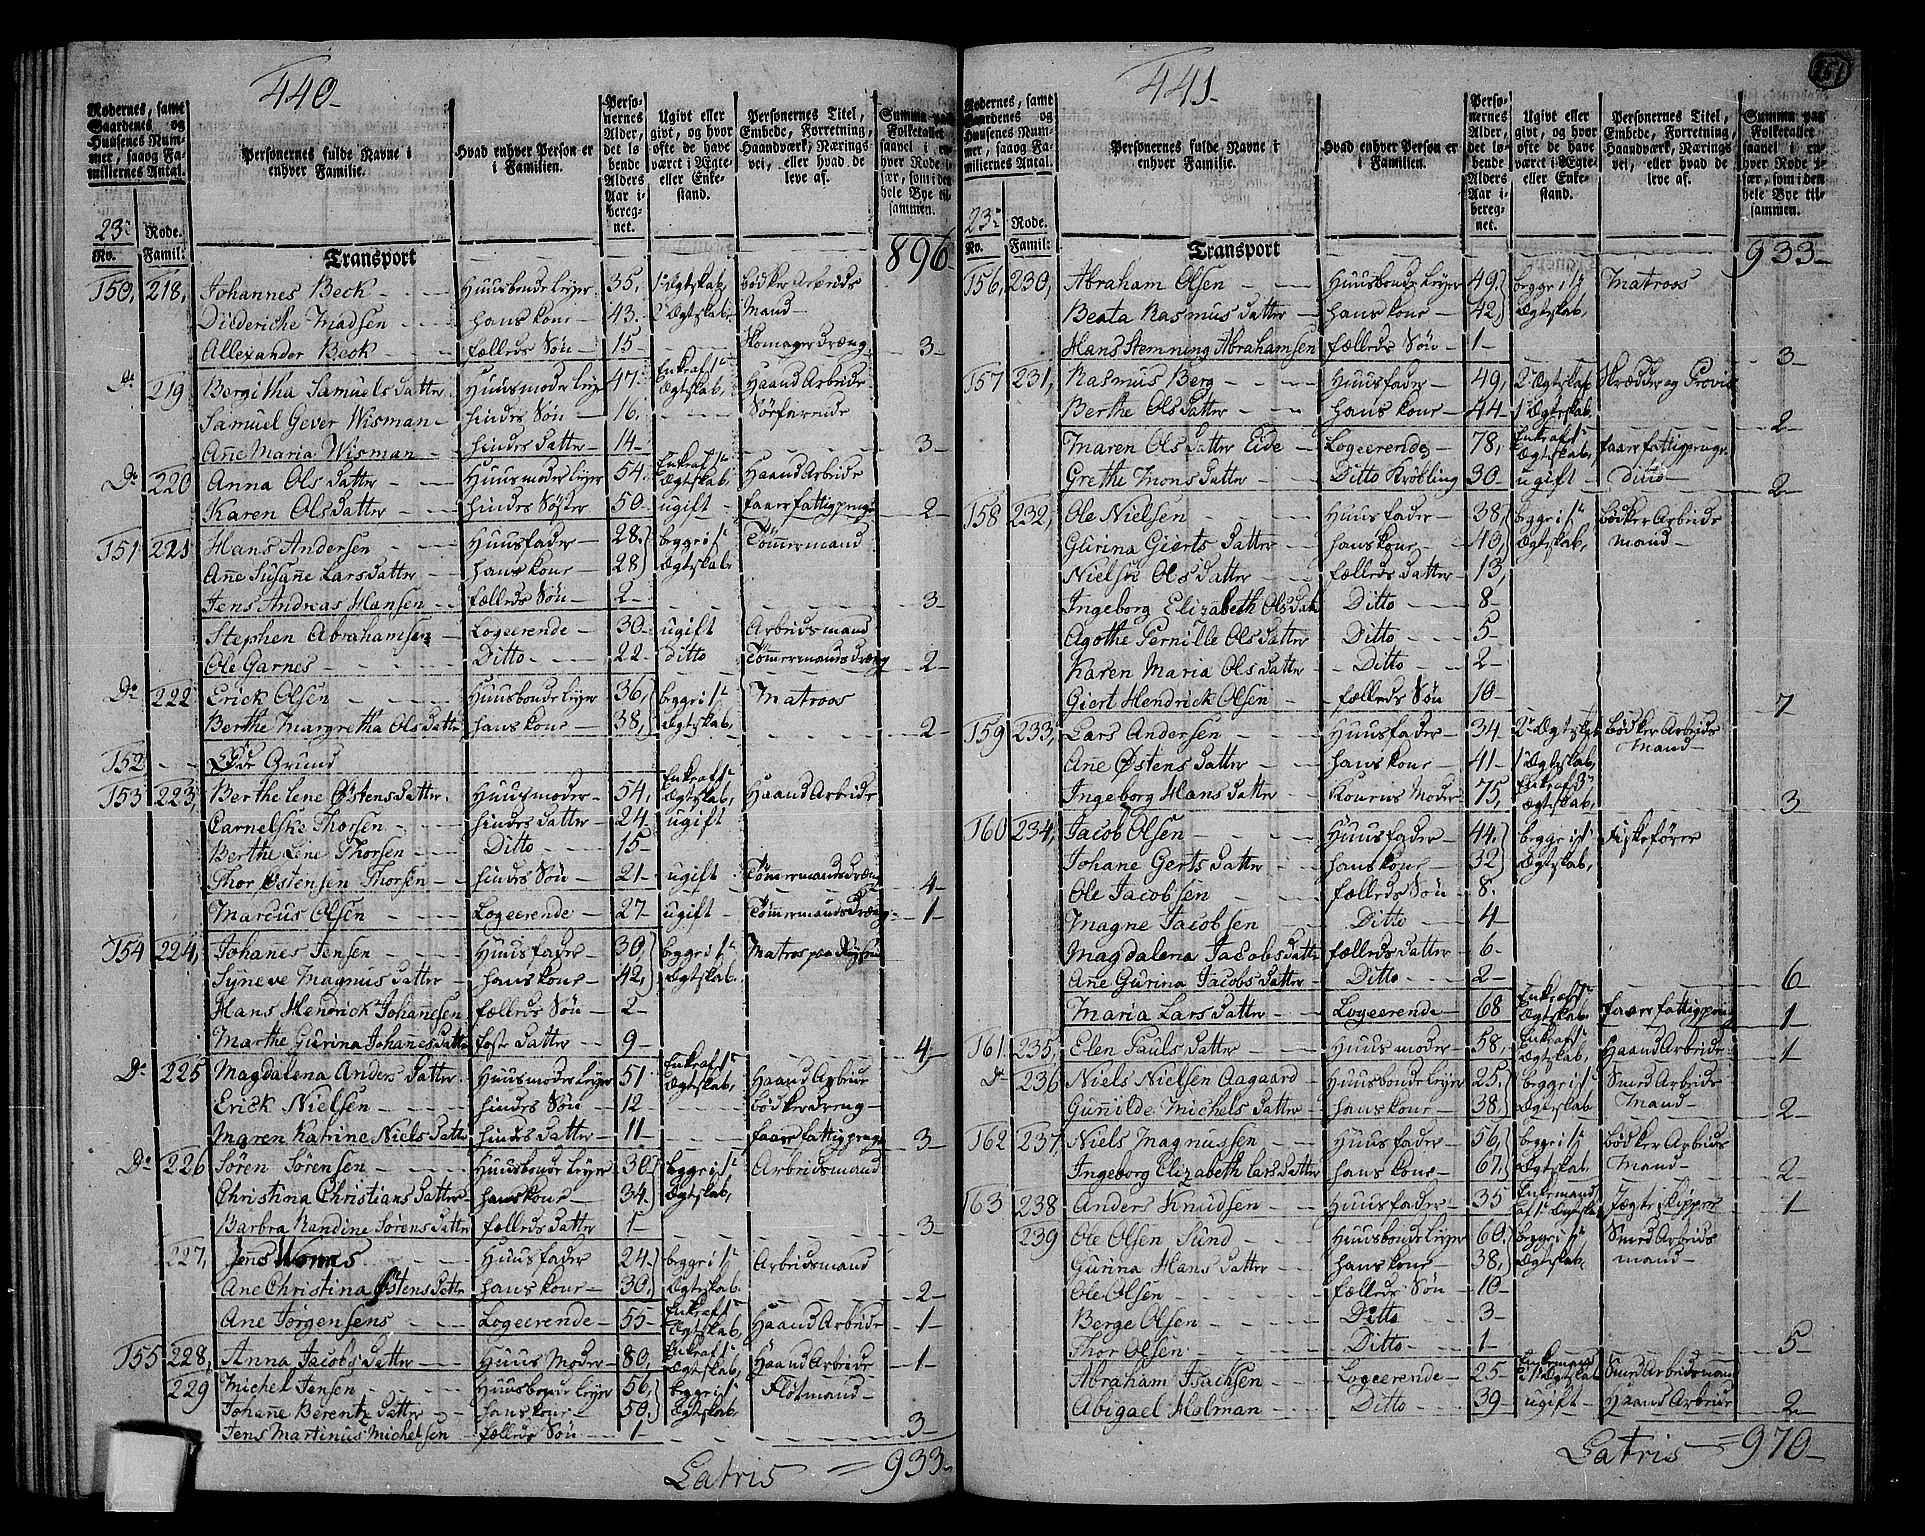 440
Rodernes, samt Gaardenes og Huusenes Nummer, saaog Familiernes Antal.
Personernes fulde Navne i enhver Familie.
Hvad enhver Person er i Familien.
Personernes Alder, det løbende Alders Aar iberegnet.
Ugivt eller givt, og hvor ofte de have været i Ægte- eller Enkestand.
Personernes Titel, Embede, Forretning, Haandværk, Næringsvei, eller hvad de leve af.
Summa paa Folketallet saavel i enhver Rode især, som i den hele Bye tilsammen.
23: Rode.
No. Famil:
Transport 896
150, 218, Johannes Beck Huusbonde leyer 35, 1 Ægtskab, bødker Arbeids
Dideriche Madsen hans kone 43. 2 Ægtskab Mand
Allexander Beck fælleds Søn 15 Skomager dræng 3
Do 219 Bergitha Samuels datter Huusmoder leyer 47 Enke af 1te Ægtskab, Haand Arbeide
Samuel Gever Wisman hindes Søn 16. Søefarende
Ane Maria Wisman hindes datter 14 3
Do 220 Anna Ols datter Huusmoder leyer 54 Enke af 1te Ægtskab, Haand Arbeide
Karen Olsdatter hindes Søster 50 ugift faaer fattigpenge 2
151 221 Hans Andersen Huusfader 28. begge i 1te Tømmermand
Ane Susane Larsdatter hans kone 28 Ægtskab
Jens Andreas Hansen fælleds Søn 2 3
Stephen Abrahamsen Logeerende 30 ugift Arbeidsmand
Ole Garnes Ditto 22 ditto Tømmermands dræng 2
Do 222 Erick Olsen Huusbonde leyer 36, begge i 1te Matroos
Berthe Margretha Olsdatter hans kone 38, Ægtskab, 2
152 Øde Grund
153 223, Berthe Lene Østensdatter Huusmoder 54, Enke af 1te Ægtskab, Haand Arbeide
Carnelske Thorsen hindes datter 24 ugift
Berthe Line Thorsen Ditto 15
Thor Østensen Thorsen hindes Søn 21 ugift Tømermands dræng 4
Marcus Olsen Logeerende 27 ugift Tømmermands dræng 1
154 224, Johanes Jensen Huusfader 30, begge i 1te Matros paa
Syneve Magnus datter hans kone 42, Ægtskab.
Hans Hendrick Johanesen fælleds Søn 2
Marthe Gurina Johanes datter foster datter 9 4
Do 225 Magdalena Anders datter Huusmoder leyer 51 Enke af 1te Ægtskab, Haand Arbeide
Erick Nielsen hindes Søn 12 bødkerdreng
Maren Katrine Niels datter hindes datter 11 faaer fattigpenge 3
Do 226 Søren Sørensen Huusbonde leyer 30 begge i 1te Arbeidsmand
Christina Christians datter hans kone 34 Ægtskab,
Barbra Randine Sørens datter fælleds datter 1 3
227, Jens Huusfader 24. begge i 1te Arbeidsmand
Ane Christina Østens datter hans kone 30. Ægtskab.
2
Ane Jørgensens Logeerende 55 Enke af 1te Ægtskab, Haand Arbeide 1
155 228, Anna Jacobs datter Huus Moder 80, Enke af 1te Ægtskab, Haand Arbeide 1
229 Michel Jensen Huusbonde leyer 56, begge i 1te Fløtmand
Johane Berentz datter hans kone 50. Ægtskab,
Jens Martinus Michelsen fælleds Søn 1 3
Latris = 933
441
151
Rodernes, samt Gaardenes og Huusenes Nummer, saaog Familiernes Antal.
Personernes fulde Navne i enhver Familie.
Hvad enhver Person er i Familien.
Personernes Alder, det løbende Alders Aar iberegnet.
Ugivt eller givt, og hvor ofte de have været i Ægte- eller Enkestand.
Personernes Titel, Embede, Forretning, Haandværk, Næringsvei, eller hvad de leve af.
Summa paa Folketallet saavel i enhver Rode især, som i den hele Bye tilsammen.
23: Rode.
No. Famil:
Transport 933
156, 230, Abraham Olsen Huusbonde leyer 49, begge i 1te Matroos
Beata Rasmus datter hans kone 42, Ægtskab,
Hans Stemning Abrahamsen fælleds Søn 1 3
157 231, Rasmus Berg Huusfader 49, 2 Ægtskab Skrædder og
Berthe Olsdatter hans kone 44 1 Ægteskab, 2
Maren Olsdatter Eide Logeerende 78, Enke af 1te Ægtskab, faaer fattigpenge
Grethe Mons datter Ditto Krøbling 30 ugift Ditto 2
158 232, Ole Nielsen Huusfader 38, begge i 1te bødker Arbeids
Gurina Gierts datter hans kone 40, Ægtskab, mand
Nielsin Olsdatter fælleds datter 13,
Ingeborg Elizabeth Olsdat Ditto 8
Agothe Pernille Olsdatter Ditto 5
Karen Maria Olsdatter Ditto 2
Giert Hendrick Olsen fælleds Søn 10 7
159 233, Lars Andersen Huusfader 34 2 Ægtskab bødker Arbeids
Mand
Ane Østens datter hans kone 41 1 Ægtskab,
Ingeborg Hans datter Konens Moder 75, Enke af 3 Ægtskab, 3
160 234, Jacob Olsen Huusfader 44. begge i 1te Fiskefører
Johane Gerts datter hans kone 32 Ægtskab,
Ole Jacobsen fælleds Søn 8.
Magne Jacobsen Ditto 4
Magdalena Jacobs datter fælleds datter 6
Ane Gurina Jacobs datter Ditto 2 6
Maria Lars datter Logeerende 68 Enke af 1te Ægtskab. faaer fattigpenge 1
161. 235, Elen Pauls datter Huus moder 58, Enke af 1te Ægtskab, Haand Arbeide 1
Do 236 Niels Nielsen Aagaard Huusbonde leyer 25. begge i 1te Smed Arbeide
Gunilde Michels datter hans kone 38, Ægtskab Mand 2
162 237, Niels Magnussen Huusfader 56, begge i 1te bødker Arbeids
Ingeborg Elizabeth Larsdatter hans kone 67. Ægtskab. Mand 2
163 238 Anders Knudsen Huusfader 35 Enkemand af 1te Ægtskab Jægte skipper 1
239 Ole Olsen Sund Huusbonde leyer 60, begge i 1te Smed Arbeids
Gurina Hans datter hans kone 38, Ægtskab, mand
Ole Olsen fælleds Søn 10
Berge Olsen Ditto 3
Thor Olsen Ditto 1 5
Abraham Isachsen Logeerende 25 Enkemand af 1 Ægtskab Smed Arbeidsmand
Abigael Holman Ditto 39 ugift Haand Arbeide 2
Latris = 970